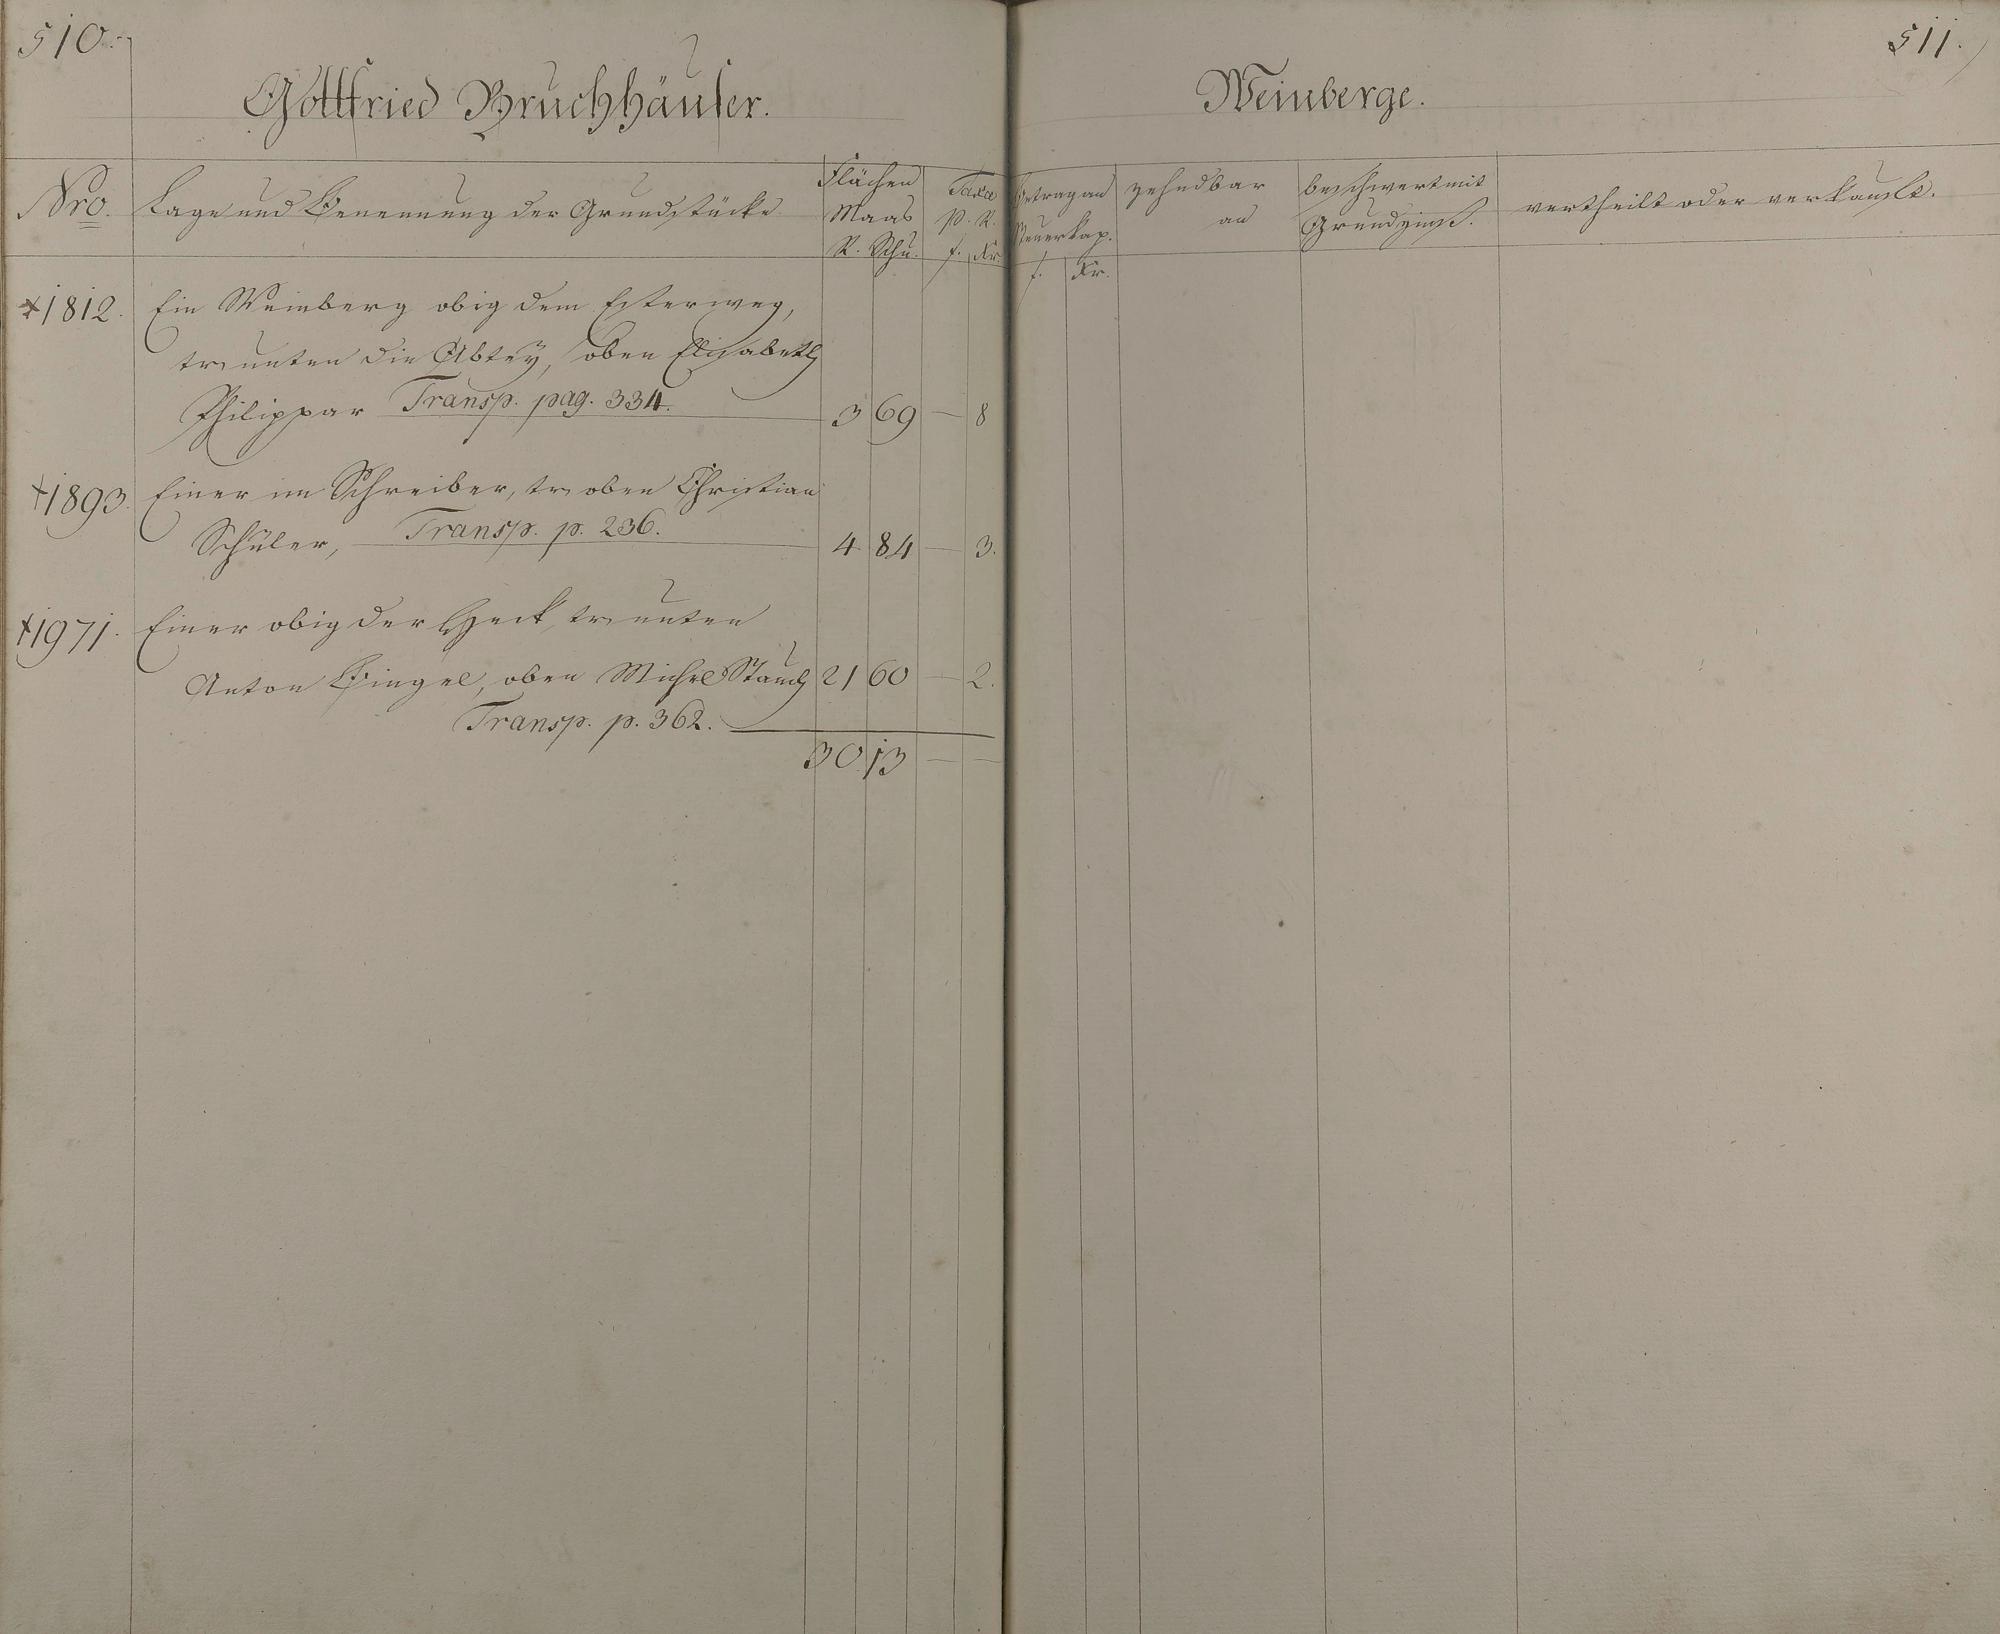 510.
Gottfried Bruchhäuser.
Nro.
Lage und Benennung der Grundstücke
Flächen
Maas
R. Schu.
Taxa
p. R.
f. Kr.
✝1812. Ein Weinberg obig dem Esterweg,
tr unten die Abtey, oben Elisabeth
Philippar Transp. pag. 334. 3 69 — 8
✝1893. Einer im Schreiber, tr oben Christian
Schüler, Transp. p. 236. 4 84 — 3.
✝1971. Einer obig der Heck, tr unten
Anton Bingel, oben Michel Stauch 21 60 — 2.
Transp. p. 362.
30 13 — —
511.
Weinberge.
Betrag an
Steuerkap.
f. Kr.
zehndbar
an
beschwert mit
Grundzinß.
vertheilt oder verkauft.